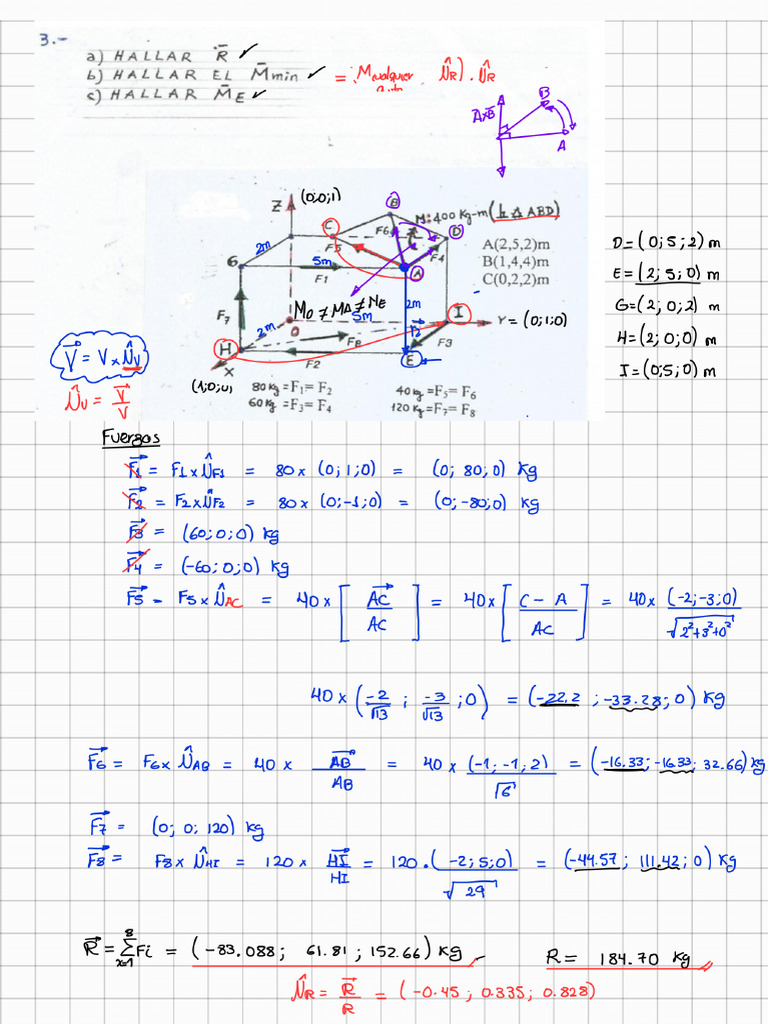 3.-
a) HALLAR R̄ ✓
b) HALLAR EL M̄min ✓ = (Mcualquier . ûR) . ûR
c) HALLAR M̄E ✓
AxB
B
A
Z (0;0;1)
B
M=400 Kg-m (⊥ △ ABD)
C
F6
D
2m
F5
F4
A(2,5,2)m
B(1,4,4)m
C(0,2,2)m
G
5m
A
F1
2m
F7
M0 ≠ MA ≠ ME
5m
I
Y = (0;1;0)
2m
O
F8
r2
H
F2
F3
E
X
(1;0;0)
80 Kg =F1= F2
60 Kg =F3= F4
40 Kg =F5= F6
120 Kg =F7= F8
D = (0;5;2) m
E = (2;5;0) m
G = (2;0;2) m
H = (2;0;0) m
I = (0;5;0) m
V⃗ = V x ûv
ûv = V⃗ / V
Fuerzas
F⃗1 = F1 x ûF1 = 80 x (0;1;0) = (0; 80;0) Kg
F⃗2 = F2 x ûF2 = 80 x (0;-1;0) = (0;-80;0) Kg
F⃗3 = (60;0;0) Kg
F⃗4 = (-60;0;0) Kg
F⃗5 = F5 x ûAC = 40 x [AC⃗ / AC] = 40 x [C - A / AC] = 40 x (-2;-3;0) / √2²+3²+0²
40 x (-2/√13 ; -3/√13 ;0) = (-22.2 ; -33.28; 0) Kg
F⃗6 = F6 x ûAB = 40 x AB⃗ / AB = 40 x (-1; -1; 2) / √6 = (-16.33; -16.33; 32.66) Kg
F⃗7 = (0; 0; 120) Kg
F⃗8 = F8 x ûHI = 120 x HI⃗ / HI = 120 . (-2; 5;0) / √29 = (-44.57 ; 111.42 ; 0) Kg
R⃗ = Σ Fi = (-83.088; 61.81 ; 152.66) Kg R = 184.70 Kg
ûR = R⃗ / R = (-0.45 ; 0.335; 0.828)